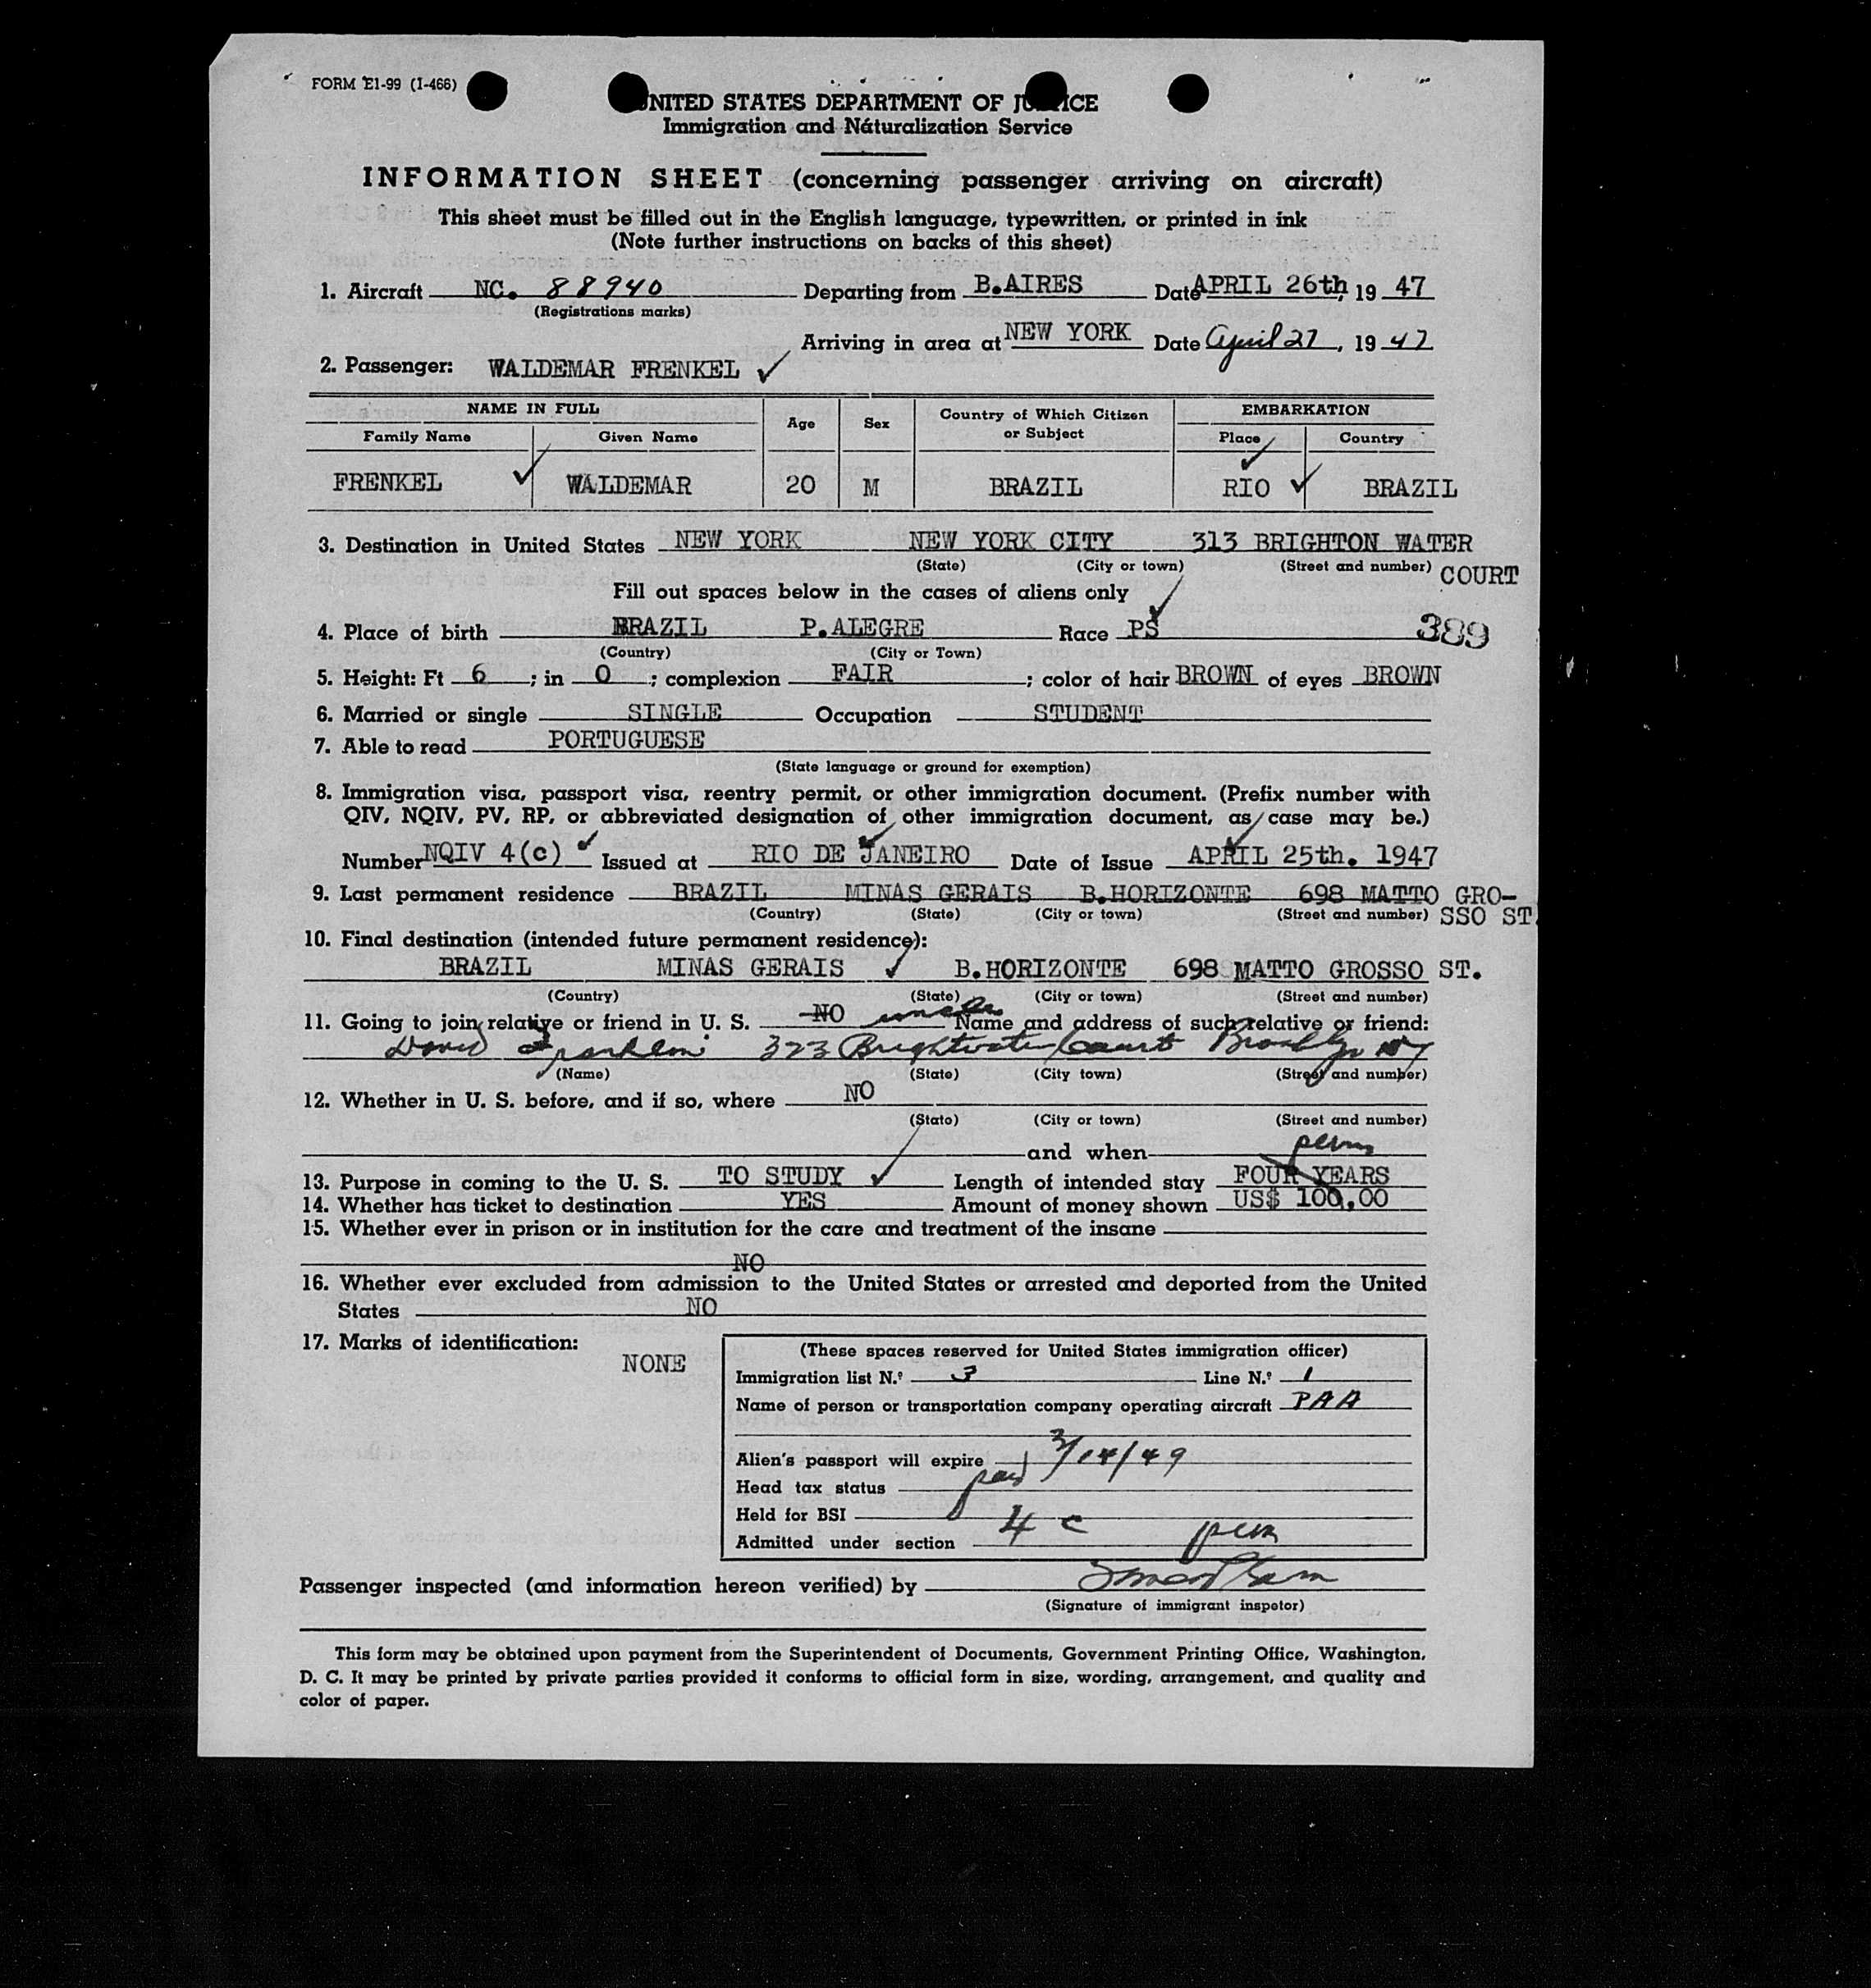 FORM E1-99 (I-466)
UNITED STATES DEPARTMENT OF JUSTICE
Immigration and Naturalization Service
INFORMATION SHEET (concerning passenger arriving on aircraft)
This sheet must be filled out in the English language, typewritten, or printed in ink
(Note further instructions on backs of this sheet)
1. Aircraft NC. 88940 Departing from B.AIRES Date APRIL 26th, 19 47
(Registrations marks)
Arriving in area at NEW YORK Date April 27, 19 47
2. Passenger: WALDEMAR FRENKEL ✓
NAME IN FULL Age Sex Country of Which Citizen or Subject EMBARKATION
Family Name Given Name Place Country
FRENKEL WALDEMAR 20 M BRAZIL RIO BRAZIL
3. Destination in United States NEW YORK NEW YORK CITY 313 BRIGHTON WATER
(State) (City or town) (Street and number) COURT
Fill out spaces below in the cases of aliens only
4. Place of birth BRAZIL P.ALEGRE Race PS 389
(Country) (City or Town)
5. Height: Ft 6 ; in 0 ; complexion FAIR ; color of hair BROWN of eyes BROWN
6. Married or single SINGLE Occupation STUDENT
7. Able to read PORTUGUESE
(State language or ground for exemption)
8. Immigration visa, passport visa, reentry permit, or other immigration document. (Prefix number with
QIV, NQIV, PV, RP, or abbreviated designation of other immigration document, as case may be.)
Number NQIV 4(c) Issued at RIO DE JANEIRO Date of Issue APRIL 25th. 1947
9. Last permanent residence BRAZIL MINAS GERAIS B.HORIZONTE 698 MATTO GRO-
(Country) (State) (City or town) (Street and number) SSO ST.
10. Final destination (intended future permanent residence):
BRAZIL MINAS GERAIS B.HORIZONTE 698 MATTO GROSSO ST.
(Country) (State) (City or town) (Street and number)
11. Going to join relative or friend in U. S. NO uncle Name and address of such relative or friend:
David 323 Brightwater Court Brooklyn NY
(Name) (State) (City town) (Street and number)
12. Whether in U. S. before, and if so, where NO
(Stato) (City or town) (Street and number)
and when perm
13. Purpose in coming to the U. S. TO STUDY Length of intended stay FOUR YEARS
14. Whether has ticket to destination YES Amount of money shown US$ 100,00
15. Whether ever in prison or in institution for the care and treatment of the insane
NO
16. Whether ever excluded from admission to the United States or arrested and deported from the United
States NO
17. Marks of identification:
NONE
(These spaces reserved for United States immigration officer)
Immigration list N.º 3 Line N.º 1
Name of person or transportation company operating aircraft PAA
Alien's passport will expire 3/14/49
Head tax status paid
Held for BSI
Admitted under section 4 c perm
Passenger inspected (and information hereon verified) by
(Signature of immigrant inspetor)
This form may be obtained upon payment from the Superintendent of Documents, Government Printing Office, Washington,
D. C. It may be printed by private parties provided it conforms to official form in size, wording, arrangement, and quality and
color of paper.